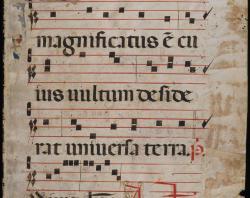 magnificatus ē cu
ius uultum deside
rat uniuersa terra. p̄.